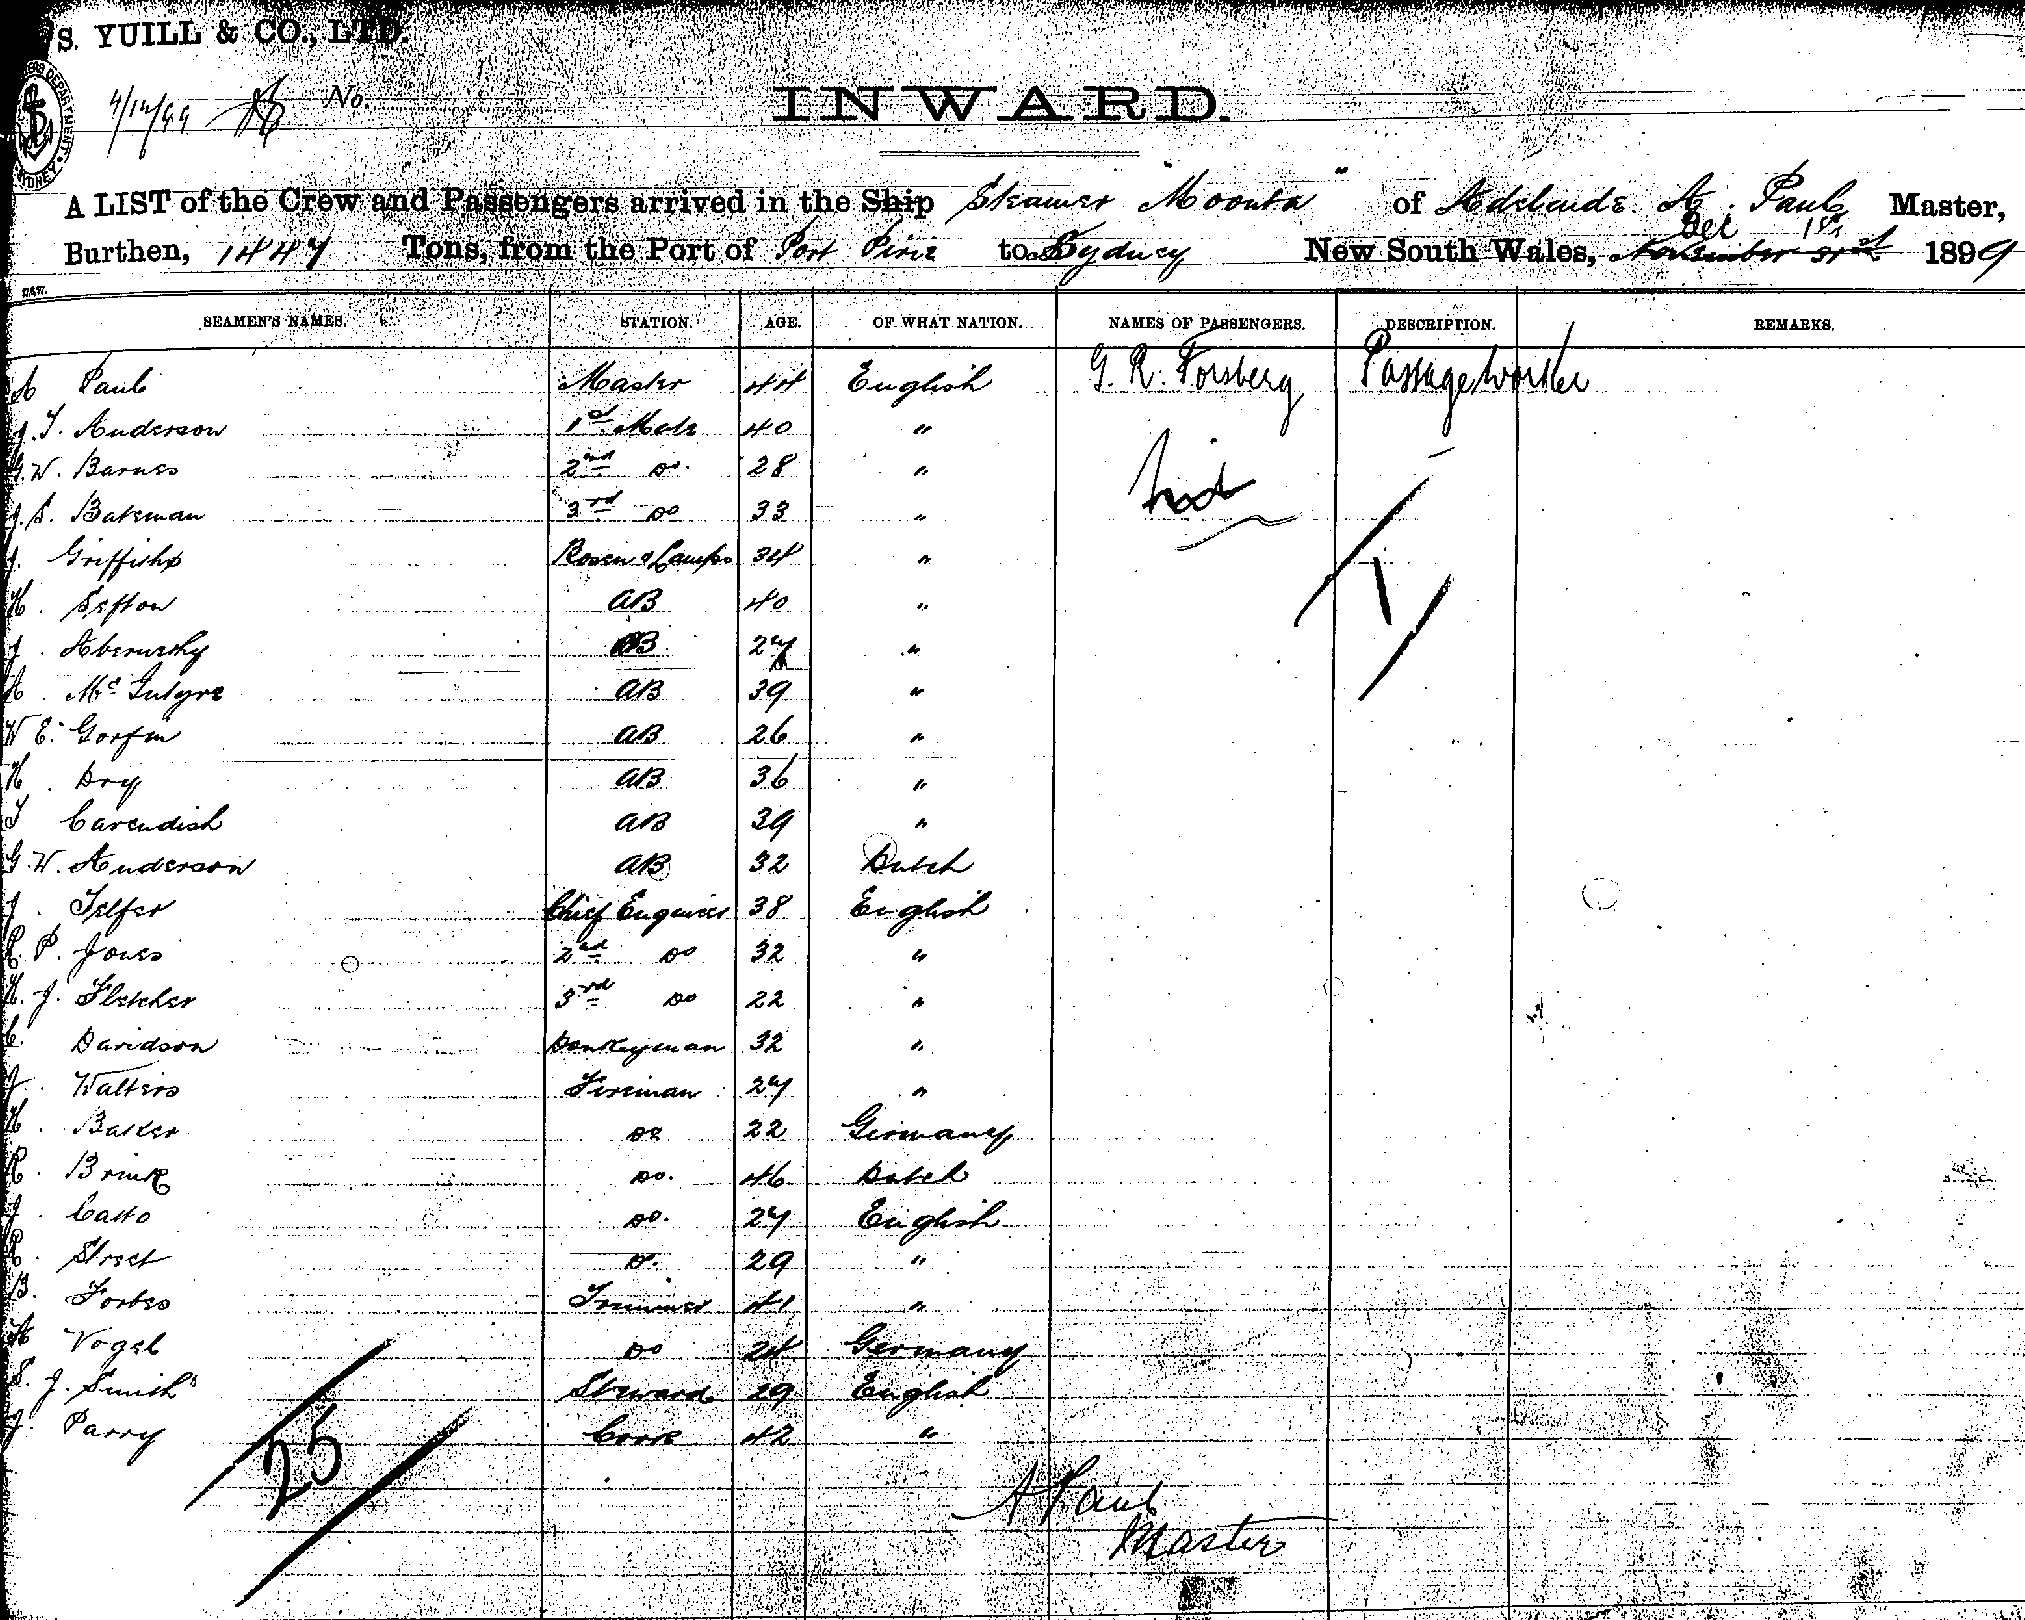 S. YUILL & CO., LTD.
4/12/99 No.
INWARD.
A LIST of the Crew and Passengers arrived in the Ship Steamer "Moonta" of Adelaide A. Paul Master,
Dec 1st
Burthen, 1447 Tons, from the Port of Port Pirie to Sydney New South Wales, November 31st 1899
SEAMEN'S NAMES. STATION. AGE. OF WHAT NATION. NAMES OF PASSENGERS. DESCRIPTION. REMARKS.
A Paul Master 44 English G. R. Forsberg Passage Worker
J. T. Anderson 1st Mate 40 "
G. W. Barnes 2nd Do. 28 "
J. S. Bateman 3rd Do 33 "
J. Griffiths Bosun & Lamps 34 "
H. Sefton AB 40 "
J. Abernethy AB 27 "
A. McIntyre AB 39 "
W E. Gorfin AB 26 "
H. Dry AB 36 "
T Cavendish AB 39 "
G. W. Anderson AB 32 Dutch
J. Telfer Chief Engineer 38 English
R. P. Jones 2nd Do 32 "
H. J. Fletcher 3rd Do 22 "
C. Davidson Donkeyman 32 "
J. Walters Fireman 27 "
H. Baker Do 22 Germany
R. Brink Do. 46 Dutch
J. Catto Do. 27 English
R. Street Do. 29 "
B. Forbes Trimmer 41 "
H Vogel Do 24 Germany
S. J. Smith Steward 29 English
J. Parry Cook 42 "
25
1
A Paul
Master